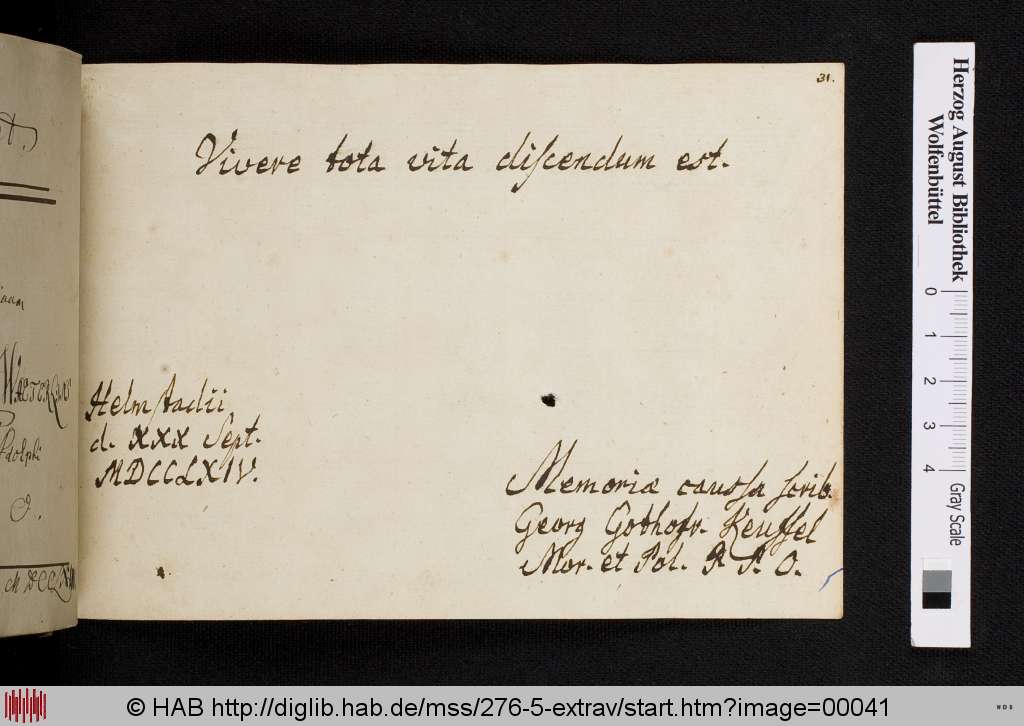 31.
Vivere tota vita diſcendum est.
Helmſtadii
d. XXX Sept.
MDCCLXIV.
Memoriæ cauſſa ſcrib.
Georg Gothofr. Keuffel
Mor. et Pol. P. P. O.
O.
Herzog August Bibliothek
Wolfenbüttel
0 1 2 3 4
Gray Scale
© HAB http://diglib.hab.de/mss/276-5-extrav/start.htm?image=00041